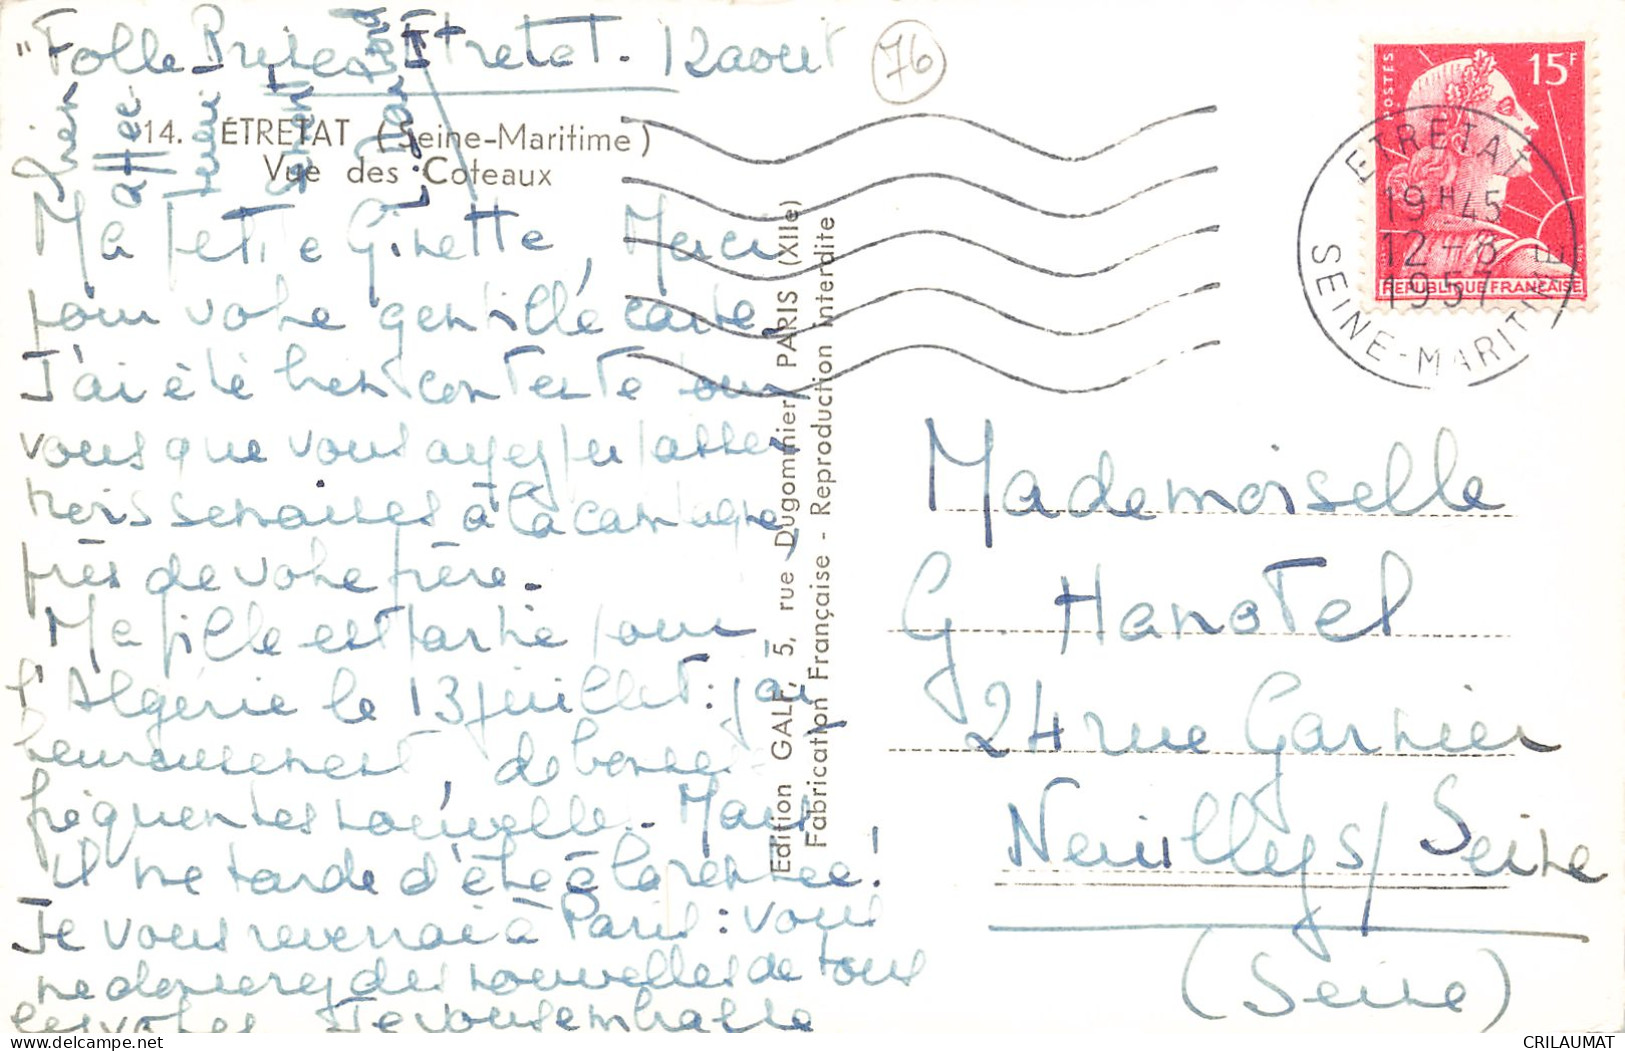 "Folle Brise" Etretat. 12 août
76
14. ÉTRETAT (Seine-Maritime)
Vue des Coteaux
Ma petite Ginette, Merci
pour votre gentille carte.
J'ai été bien contente pour
vous que vous ayez pu passer
trois semaines à la campagne,
près de votre frère.
Ma fille est partie pour
l'Algérie le 13 juillet : j'ai
heureusement, de bonnes
fréquentes nouvelles. Mais
il me tarde d'être à la rentrée !
Je vous reverrai à Paris : vous
me donnerez des nouvelles de tous
les vôtres. Je vous embrasse
bien
affec
tueu
sement
Edition GALF, 5, rue Dugommier, PARIS (XIIe)
Fabrication Française - Reproduction Interdite
POSTES
15F
REPUBLIQUE FRANÇAISE
ETRETAT
19H45
12-8
1957
SEINE-MARITIME
Mademoiselle
G. Hanotel
24 rue Garnier
Neuilly s/ Seine
(Seine)
CRILAUMAT